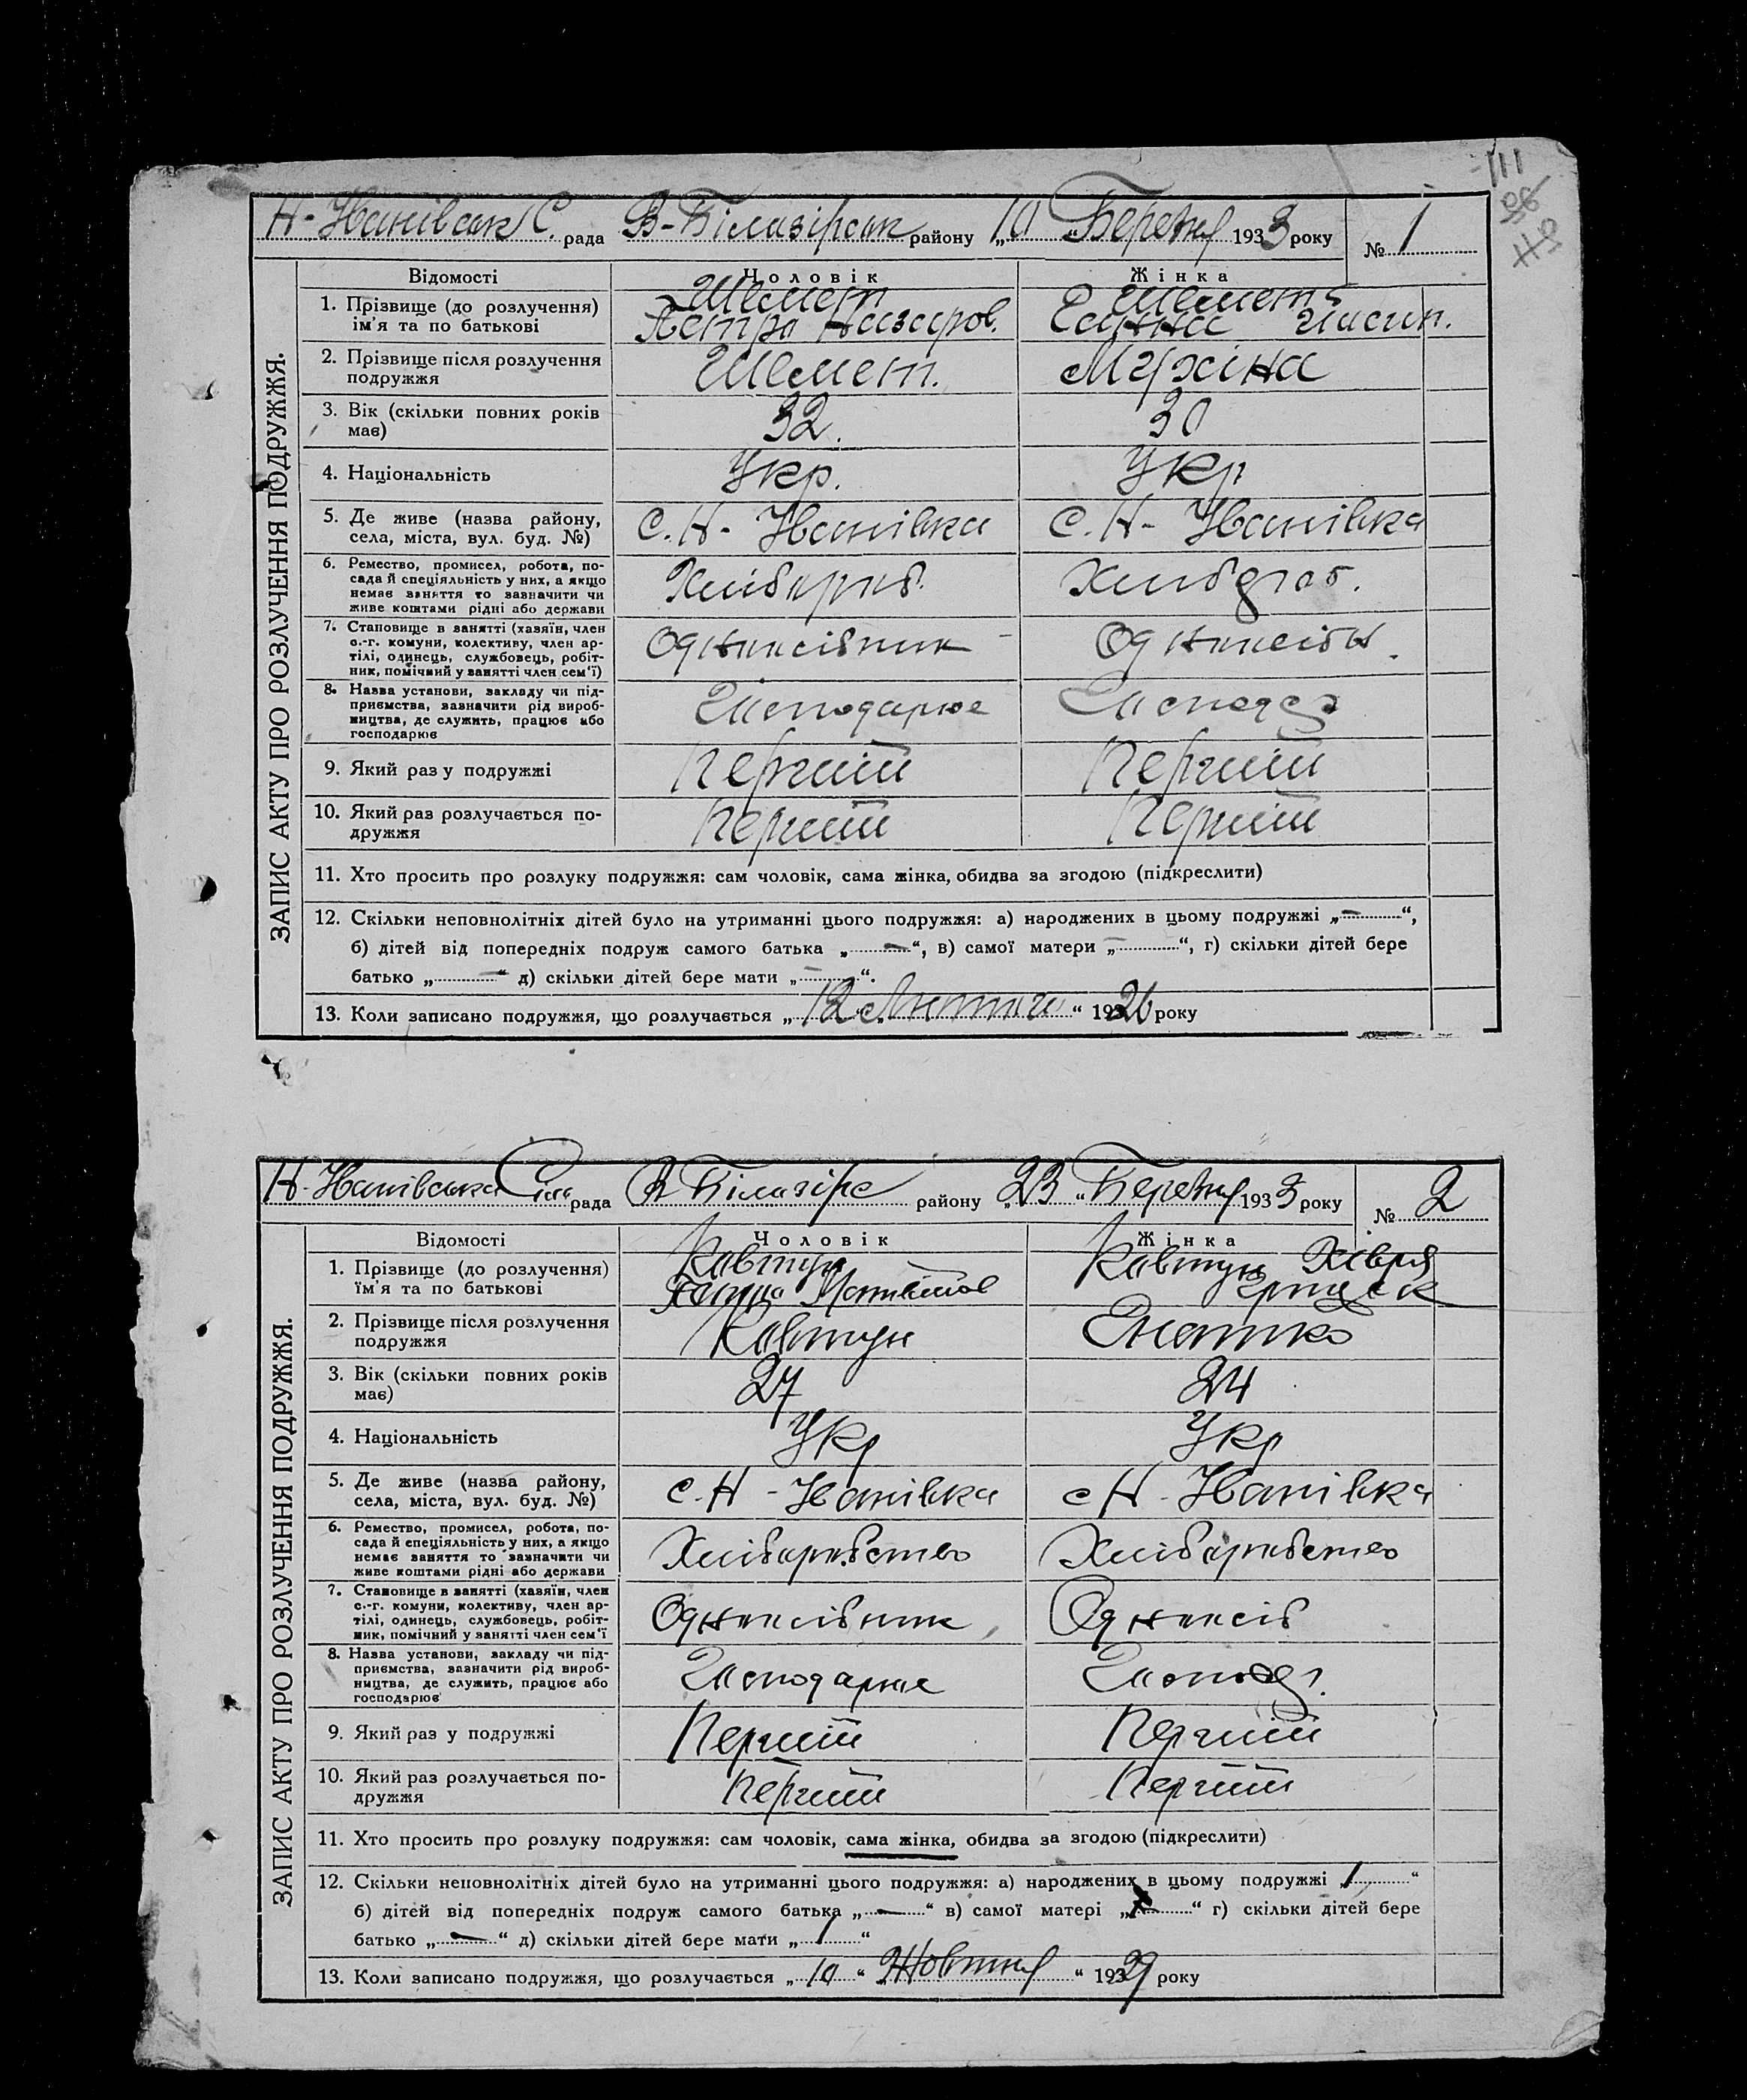 111
26
Н-Іванівськ С. рада В-Білазірськ району „10“ Березня 1933 року № 1
ЗАПИС АКТУ ПРО РОЗЛУЧЕННЯ ПОДРУЖЖЯ.
Відомості Чоловік Жінка
1. Прізвище (до розлучення) Шемет Шемет
ім'я та по батькові Петро Назаров.
2. Прізвище після розлучення Шемет. Мухіна
подружжя
3. Вік (скільки повних років 32. 30
має)
4. Національність Укр. Укр
5. Де живе (назва району, С. Н- Іванівка С. Н- Іванівка
села, міста, вул. буд. №)
6. Ремество, промисел, робота, по-
сада й спеціяльність у них, а якщо Хлібороб. Хлібороб.
немає заняття то зазначити чи
живе коштами рідні або держави
7. Становище в занятті (хазяїн, член
с.-г. комуни, колективу, член ар- Одноосібник Одноосібн.
тілі, одинець, службовець, робіт-
ник, помічний у занятті член сем'ї)
8. Назва установи, закладу чи під-
приємства, зазначити рід вироб- Господарює Господ
ництва, де служить, працює або
господарює
9. Який раз у подружжі Перший Перший
10. Який раз розлучається по- Перший Перший
дружжя
11. Хто просить про розлуку подружжя: сам чоловік, сама жінка, обидва за згодою (підкреслити)
12. Скільки неповнолітніх дітей було на утриманні цього подружжя: а) народжених в цьому подружжі „—“,
б) дітей від попередніх подруж самого батька „—“, в) самої матери „—“, г) скільки дітей бере
батько „—“ д) скільки дітей бере мати „—“.
13. Коли записано подружжя, що розлучається „12“ „Лютого“ 1926 року
Н-Іванівська Сіль рада В Білазірс району „23“ Березня 1933 року № 2
ЗАПИС АКТУ ПРО РОЗЛУЧЕННЯ ПОДРУЖЖЯ.
Відомості Чоловік Жінка
1. Прізвище (до розлучення) Ковтун Ковтун Хівря
їм'я та по батькові
2. Прізвище після розлучення Ковтун
подружжя
3. Вік (скільки повних років 27 24
має)
4. Національність Укр Укр
5. Де живе (назва району, с. Н - Іванівка с Н - Іванівка
села, міста, вул. буд. №)
6. Ремество, промисел, робота, по-
сада й спеціяльність у них, а якщо Хліборобство Хліборобство
немає заняття то зазначити чи
живе коштами рідні або держави
7. Становище в занятті (хазяїн, член
с.-г. комуни, колективу, член ар- Одноосібник Одноосіб
тілі, одинець, службовець, робіт-
ник, помічний у занятті член сем'ї
8. Назва установи, закладу чи під-
приємства, зазначити рід вироб- Господарює Господ.
ництва, де служить, працює або
господарює
9. Який раз у подружжі Перший Перший
10. Який раз розлучається по- Перший Перший
дружжя
11. Хто просить про розлуку подружжя: сам чоловік, сама жінка, обидва за згодою (підкреслити)
12. Скільки неповнолітніх дітей було на утриманні цього подружжя: а) народжених в цьому подружжі „1“
б) дітей від попередніх подруж самого батька „—“ в) самої матері „“ г) скільки дітей бере
батько „—“ д) скільки дітей бере мати „1“
13. Коли записано подружжя, що розлучається „10“ „Жовтня“ 1929 року